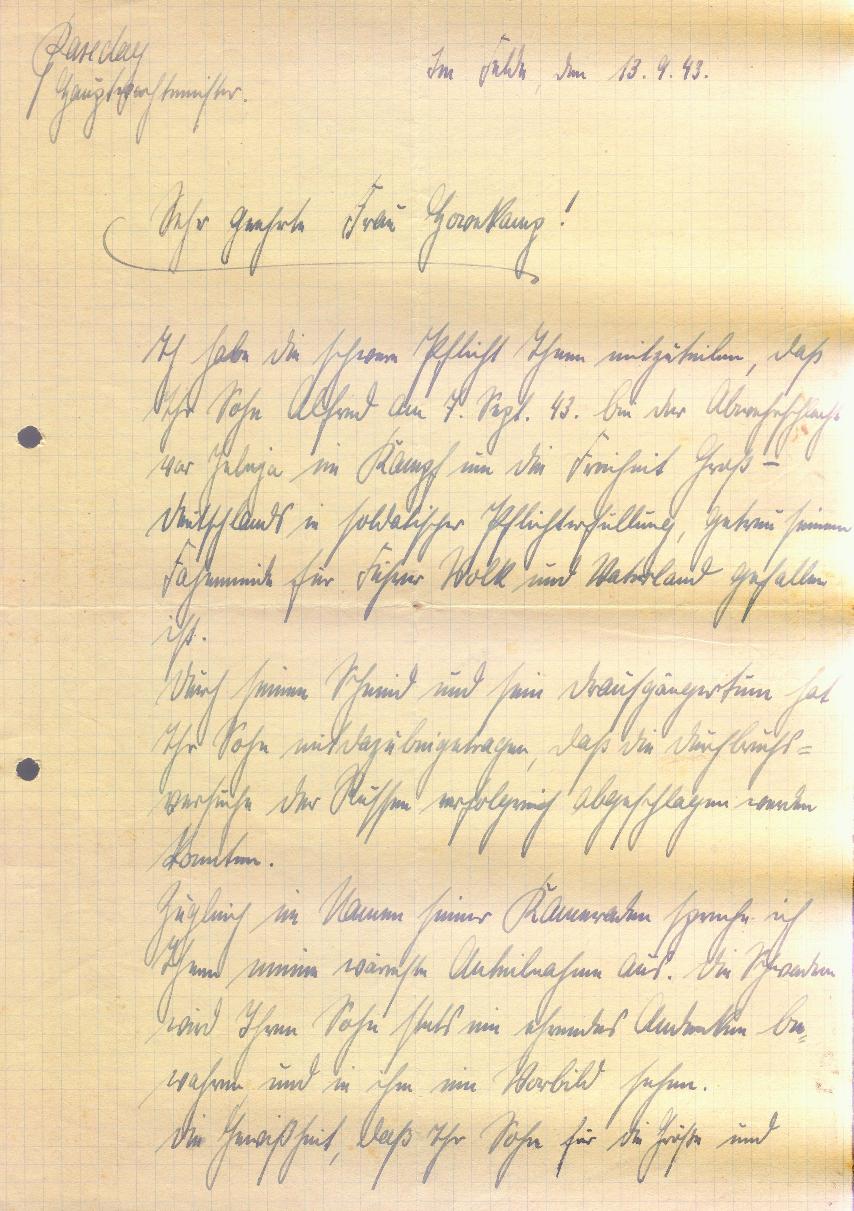 Hauptwachtmeister.
Im Felde, den 13.9.43.
Sehr geehrte Frau Howekamp!
Ich habe die schwere Pflicht Ihnen mitzuteilen, daß
Ihr Sohn Alfred am 7. Sept. 43. bei der Abwehrschlacht
vor Jelnja im Kampf um die Freiheit Groß-
deutschlands in soldatischer Pflichterfüllung, getreu seinem
Fahneneide für Führer Volk und Vaterland gefallen
ist.
Durch seinen Schneid und sein Draufgängertum hat
Ihr Sohn mit dazu beigetragen, daß die Durchbruchs=
versuche der Russen erfolgreich abgeschlagen werden
konnten.
Zugleich im Namen seiner Kameraden spreche ich
Ihnen meine wärmste Anteilnahme aus. Die Schwadron
wird Ihrem Sohn stets ein ehrendes Andenken be=
wahren und in ihm ein Vorbild sehen.
Die Gewißheit, daß Ihr Sohn für die Größe und